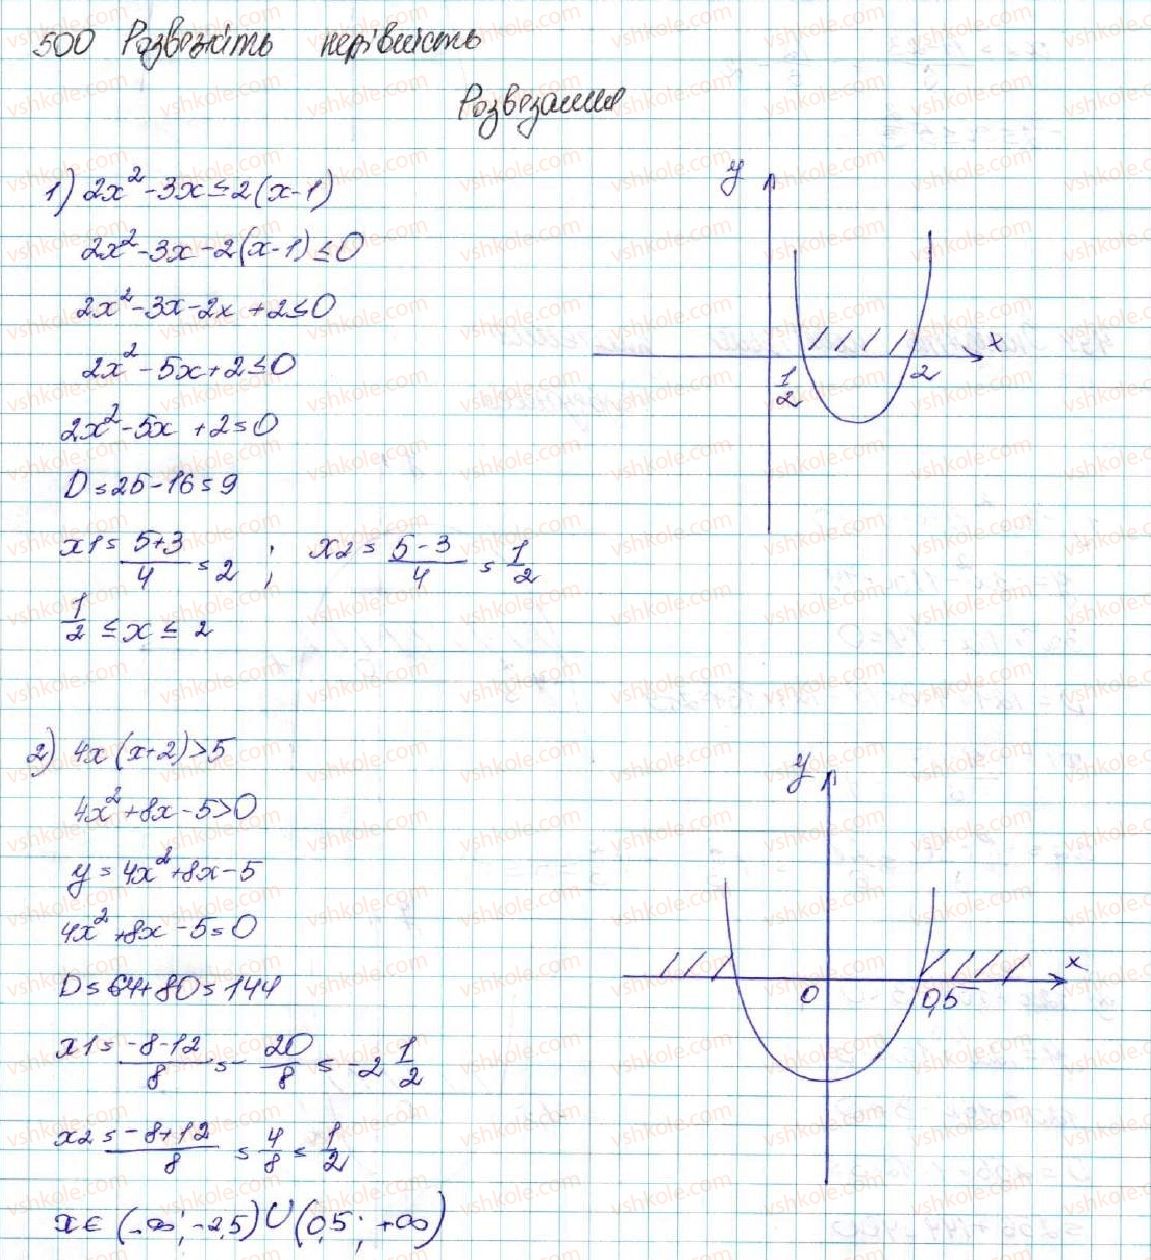 500 Розв'яжіть нерівність
Розв'язання
1) 2x² - 3x ≤ 2(x-1)
2x² - 3x - 2(x-1) ≤ 0
2x² - 3x - 2x + 2 ≤ 0
2x² - 5x + 2 ≤ 0
2x² - 5x + 2 = 0
D = 25 - 16 = 9
x1 = (5+3)/4 = 2 ; x2 = (5-3)/4 = 1/2
1/2 ≤ x ≤ 2
y
x
1/2 2
2) 4x(x+2) > 5
4x² + 8x - 5 > 0
y = 4x² + 8x - 5
4x² + 8x - 5 = 0
D = 64 + 80 = 144
x1 = (-8-12)/8 = -20/8 = -2 1/2
x2 = (-8+12)/8 = 4/8 = 1/2
x ∈ (-∞; -2,5) ∪ (0,5; +∞)
y
x
0 0,5
vshkole.com